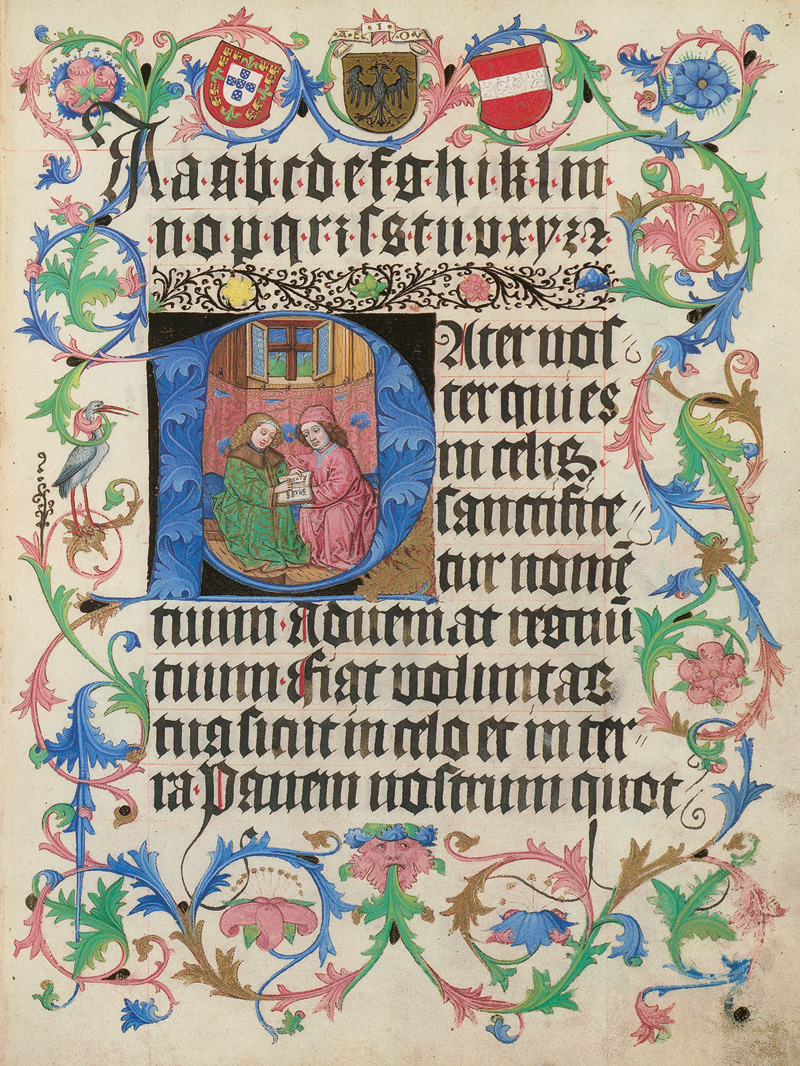 A·E·I·O·V
A a·a·b·c·d·e·f·g·h·i·k·l·m·
·n·o·p·q·r·ꝛ·ſ·s·t·u·v·x·y·z·ꝛ
PAter noſ
ter qui es
in celis·
ſanctifice
tur nomē
tuum·Adueniat regnū
tuum·Fiat voluntas
tua ſicut in celo et in ter
ra·Panem noſtrum quot